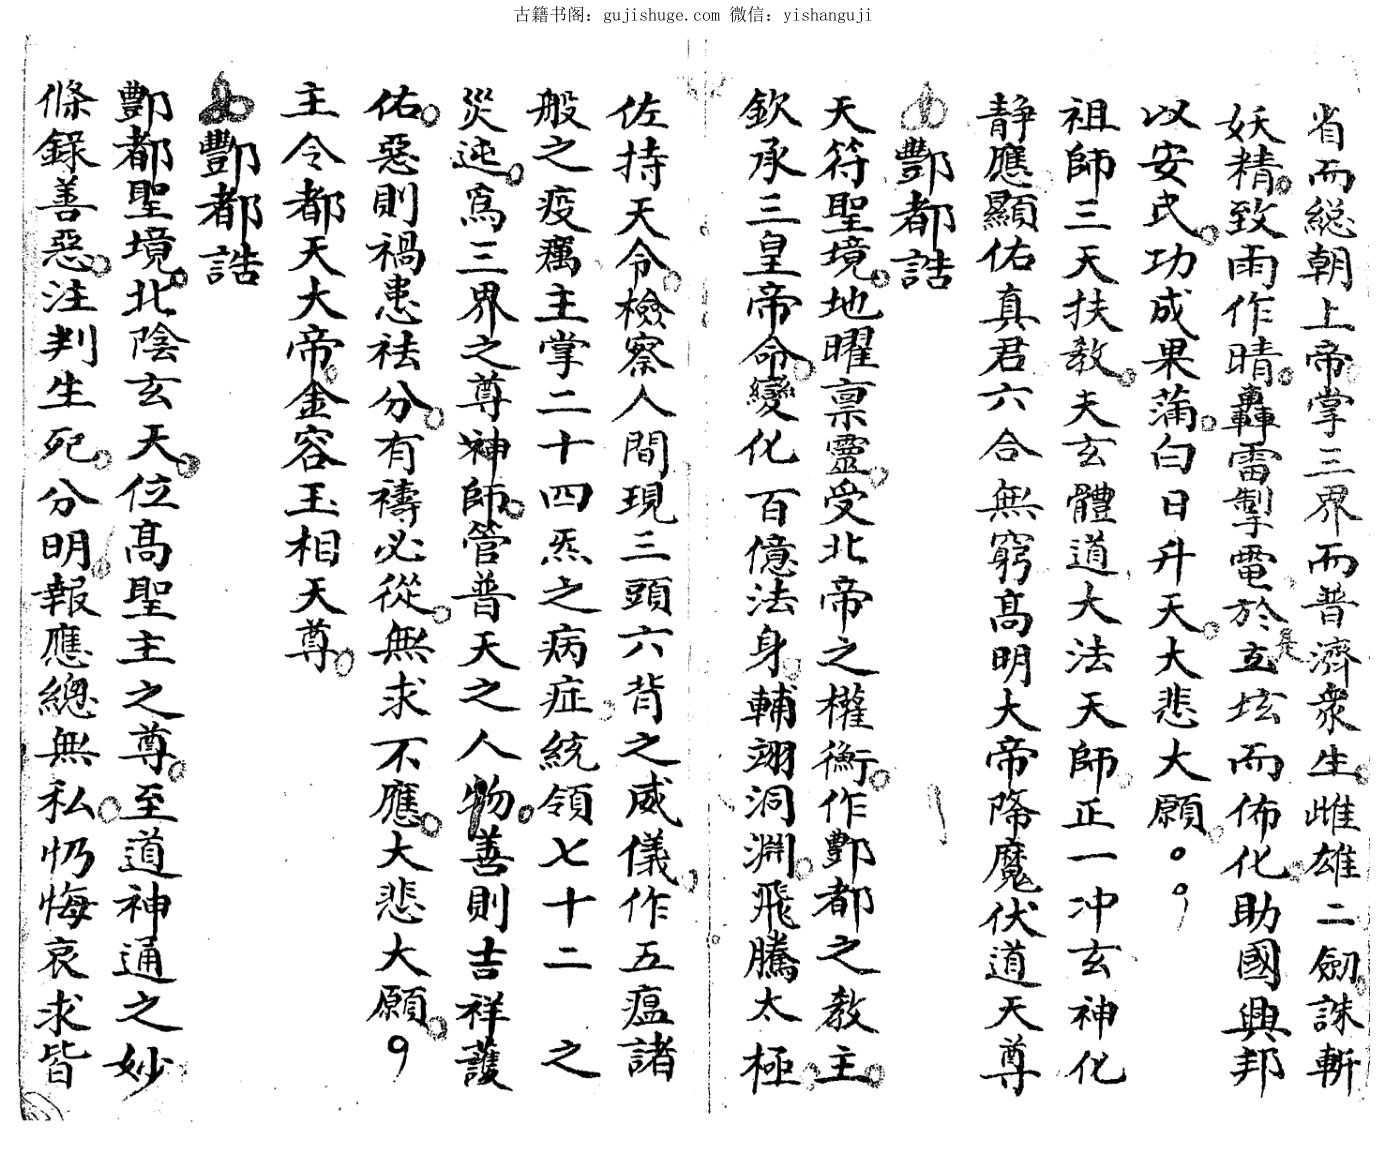 古籍书阁：gujishuge.com 微信：yishanguji
省而総朝上帝掌三界而普濟衆生雌雄二劎誅斬
妖精致雨作晴轟雷掣電於立坛而佈化助國興邦
以安民功成果蒲白日升天大悲大願
祖師三天扶教夫玄體道大法天師正一冲玄神化
静應顯佑真君六合無窮高明大帝降魔伏道天尊
酆都誥
天符聖境地曜禀靈受北帝之權衡作酆都之教主
欽承三皇帝命變化百億法身輔翊洞淵飛騰太極
佐持天令檢察人間現三頭六背之威儀作五瘟諸
般之疫癘主掌二十四炁之病症統領七十二之
災迍寫三界之尊神師管普天之人物善則吉祥護
佑惡則禍患祛分有禱必從無求不應大悲大願
主令都天大帝金容玉相天尊
酆都誥
酆都聖境北陰玄天位高聖主之尊至道神通之妙
條錄善惡注判生死分明報應總無私忛悔哀求皆